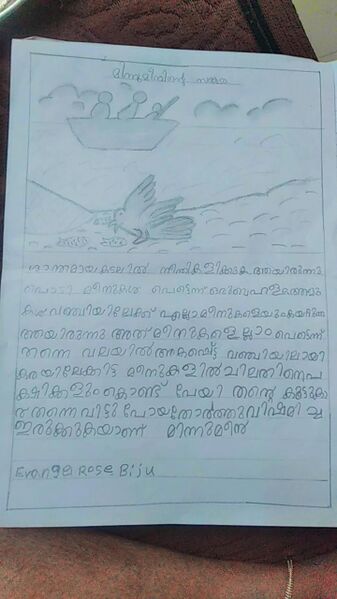 മിന്നുമീനിന്റെ സങ്കടം
ശാന്തമായകടലിൽ നീന്തികളിക്കുക ആയിരുന്നു
പൊടി മീനുകൾ പെട്ടെന്ന് ഒരുബഹളത്തോടു
വഞ്ചിയിലേക്ക് എല്ലാമീനുകളെയും
ആയിരുന്നു അത് മീനുകളെല്ലാം പെട്ടെന്ന്
തന്നെ വലയിൽ അകപ്പെട്ട് വഞ്ചിയിലായി
കരയിലേക്കിട്ട മീനുകളിൽ ചിലതിനെപ
ക്ഷികളും കൊണ്ട് പേയി തന്റെ കൂട്ടുകാ
ര തന്നെ വിട്ടു പോയതോർത്തു വിഷമി ച്ച
ഇരുക്കുകയാണ് മിന്നുമീൻ
Evangel Rose Biju